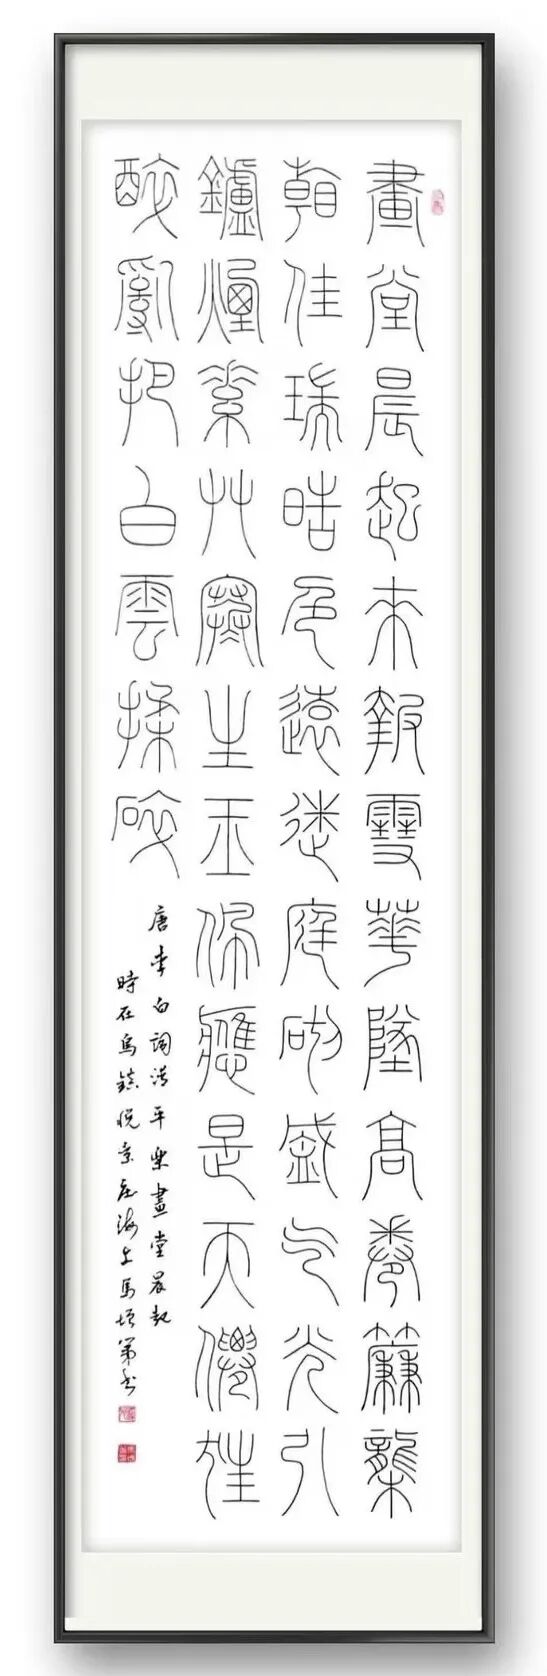 畫堂晨起來報雪華墜高卷簾櫳
看佳瑞皓色遠迷庭砌盛气光引
鑪煙素艸寒生玉佩應是天僊狂
醉亂把白雲揉碎
唐李白詞清平樂畫堂晨起
時在烏鎮悅景庄海上馬書